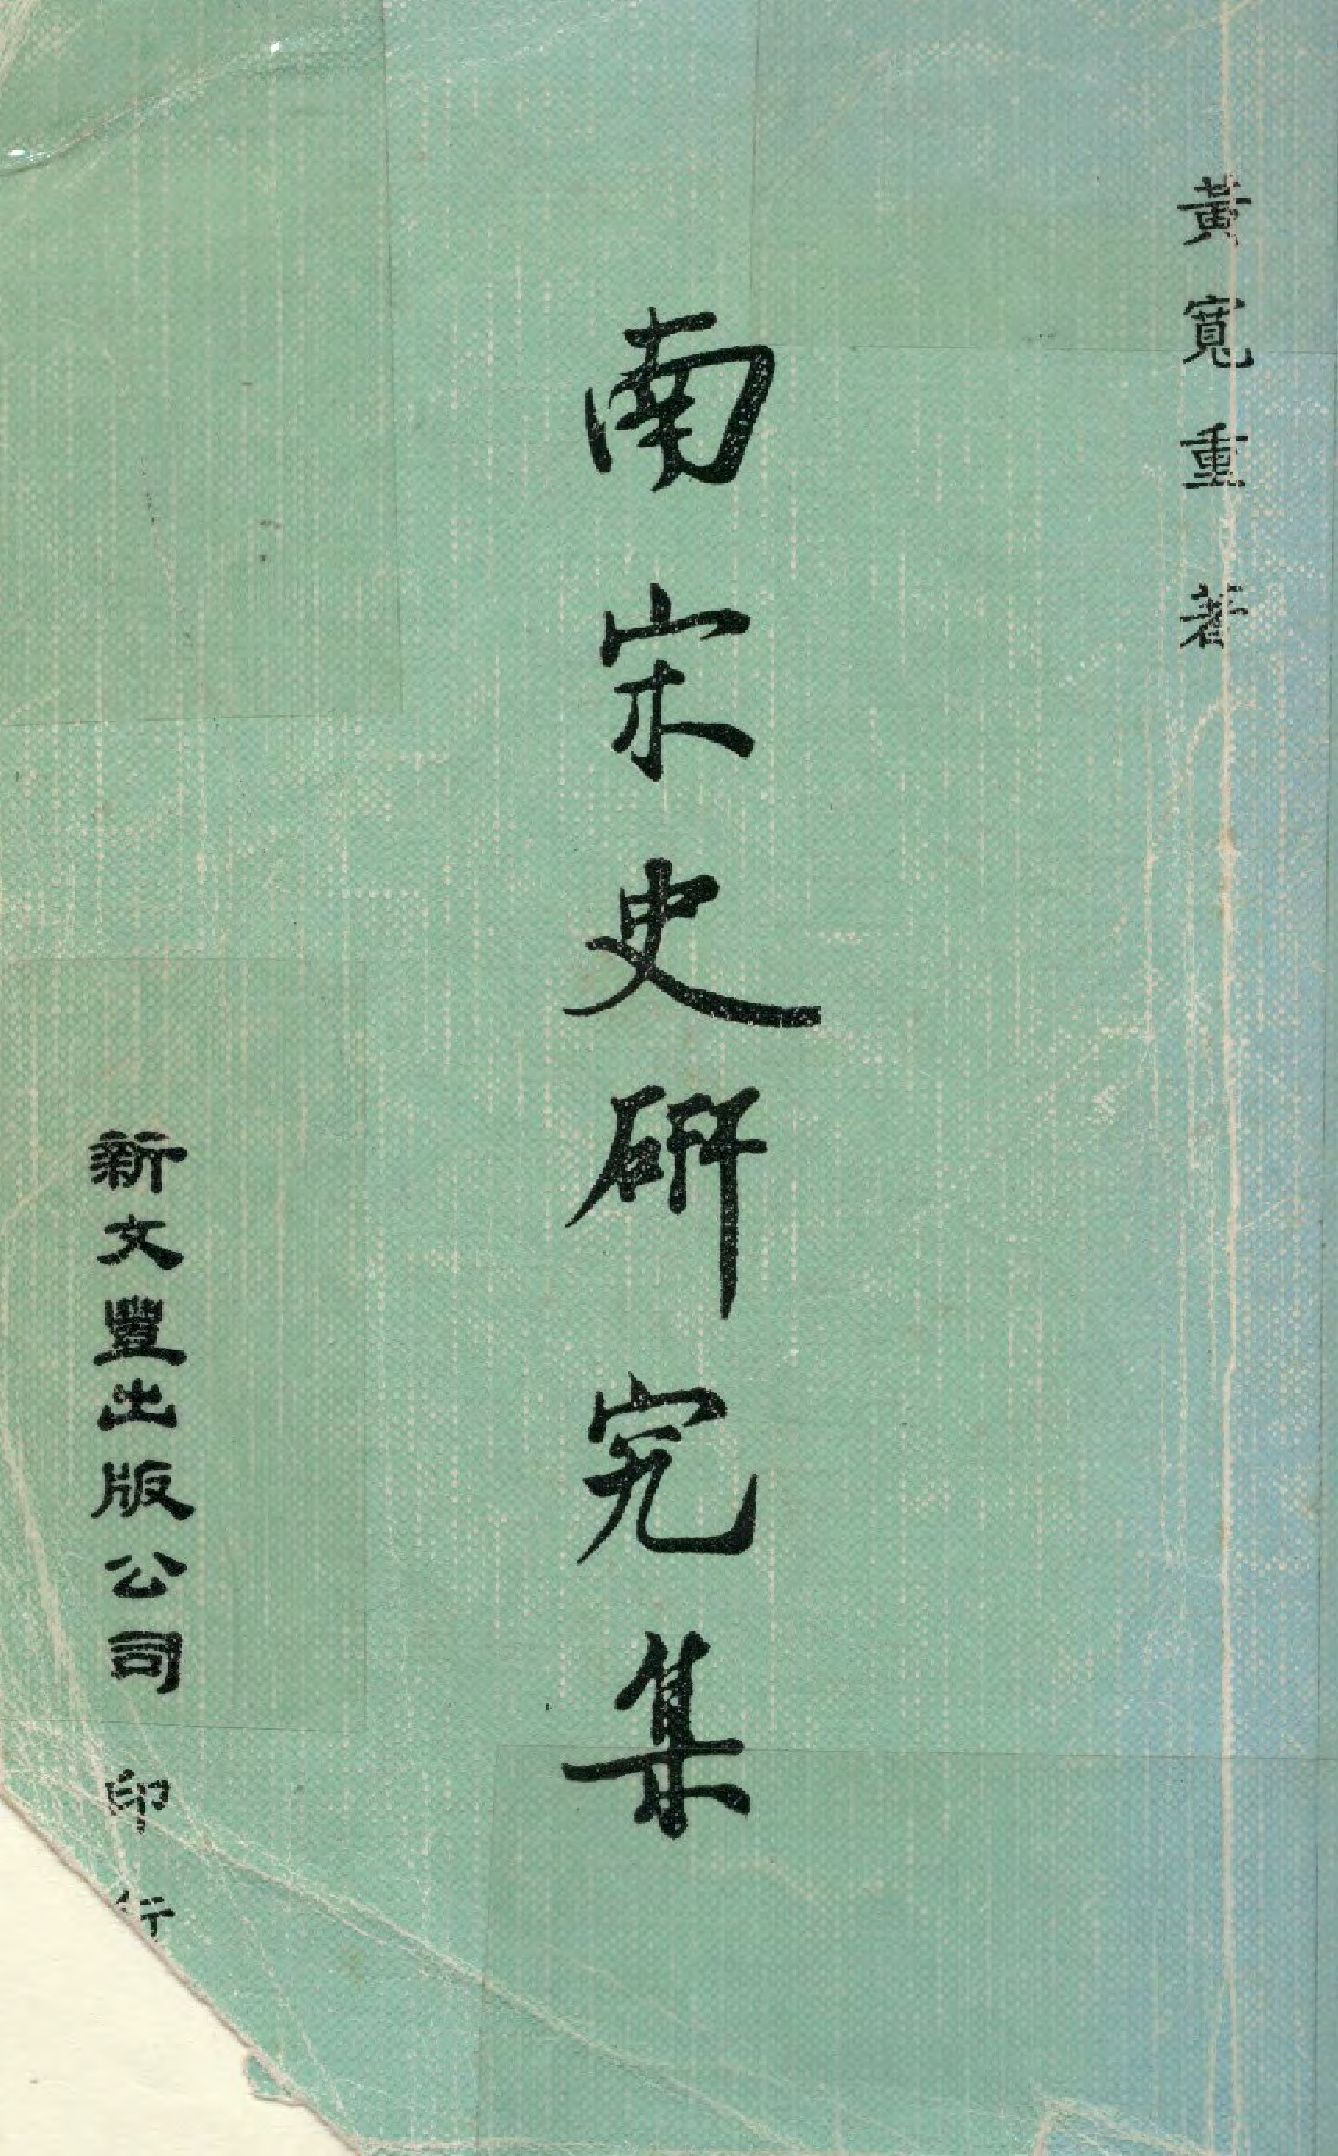 黃寬重 著
南宋史研究集
新文豐出版公司 印行